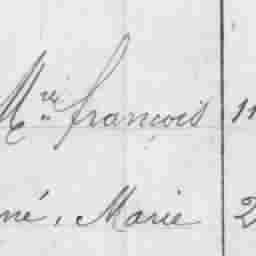 Mre françois 11
né, Marie 2